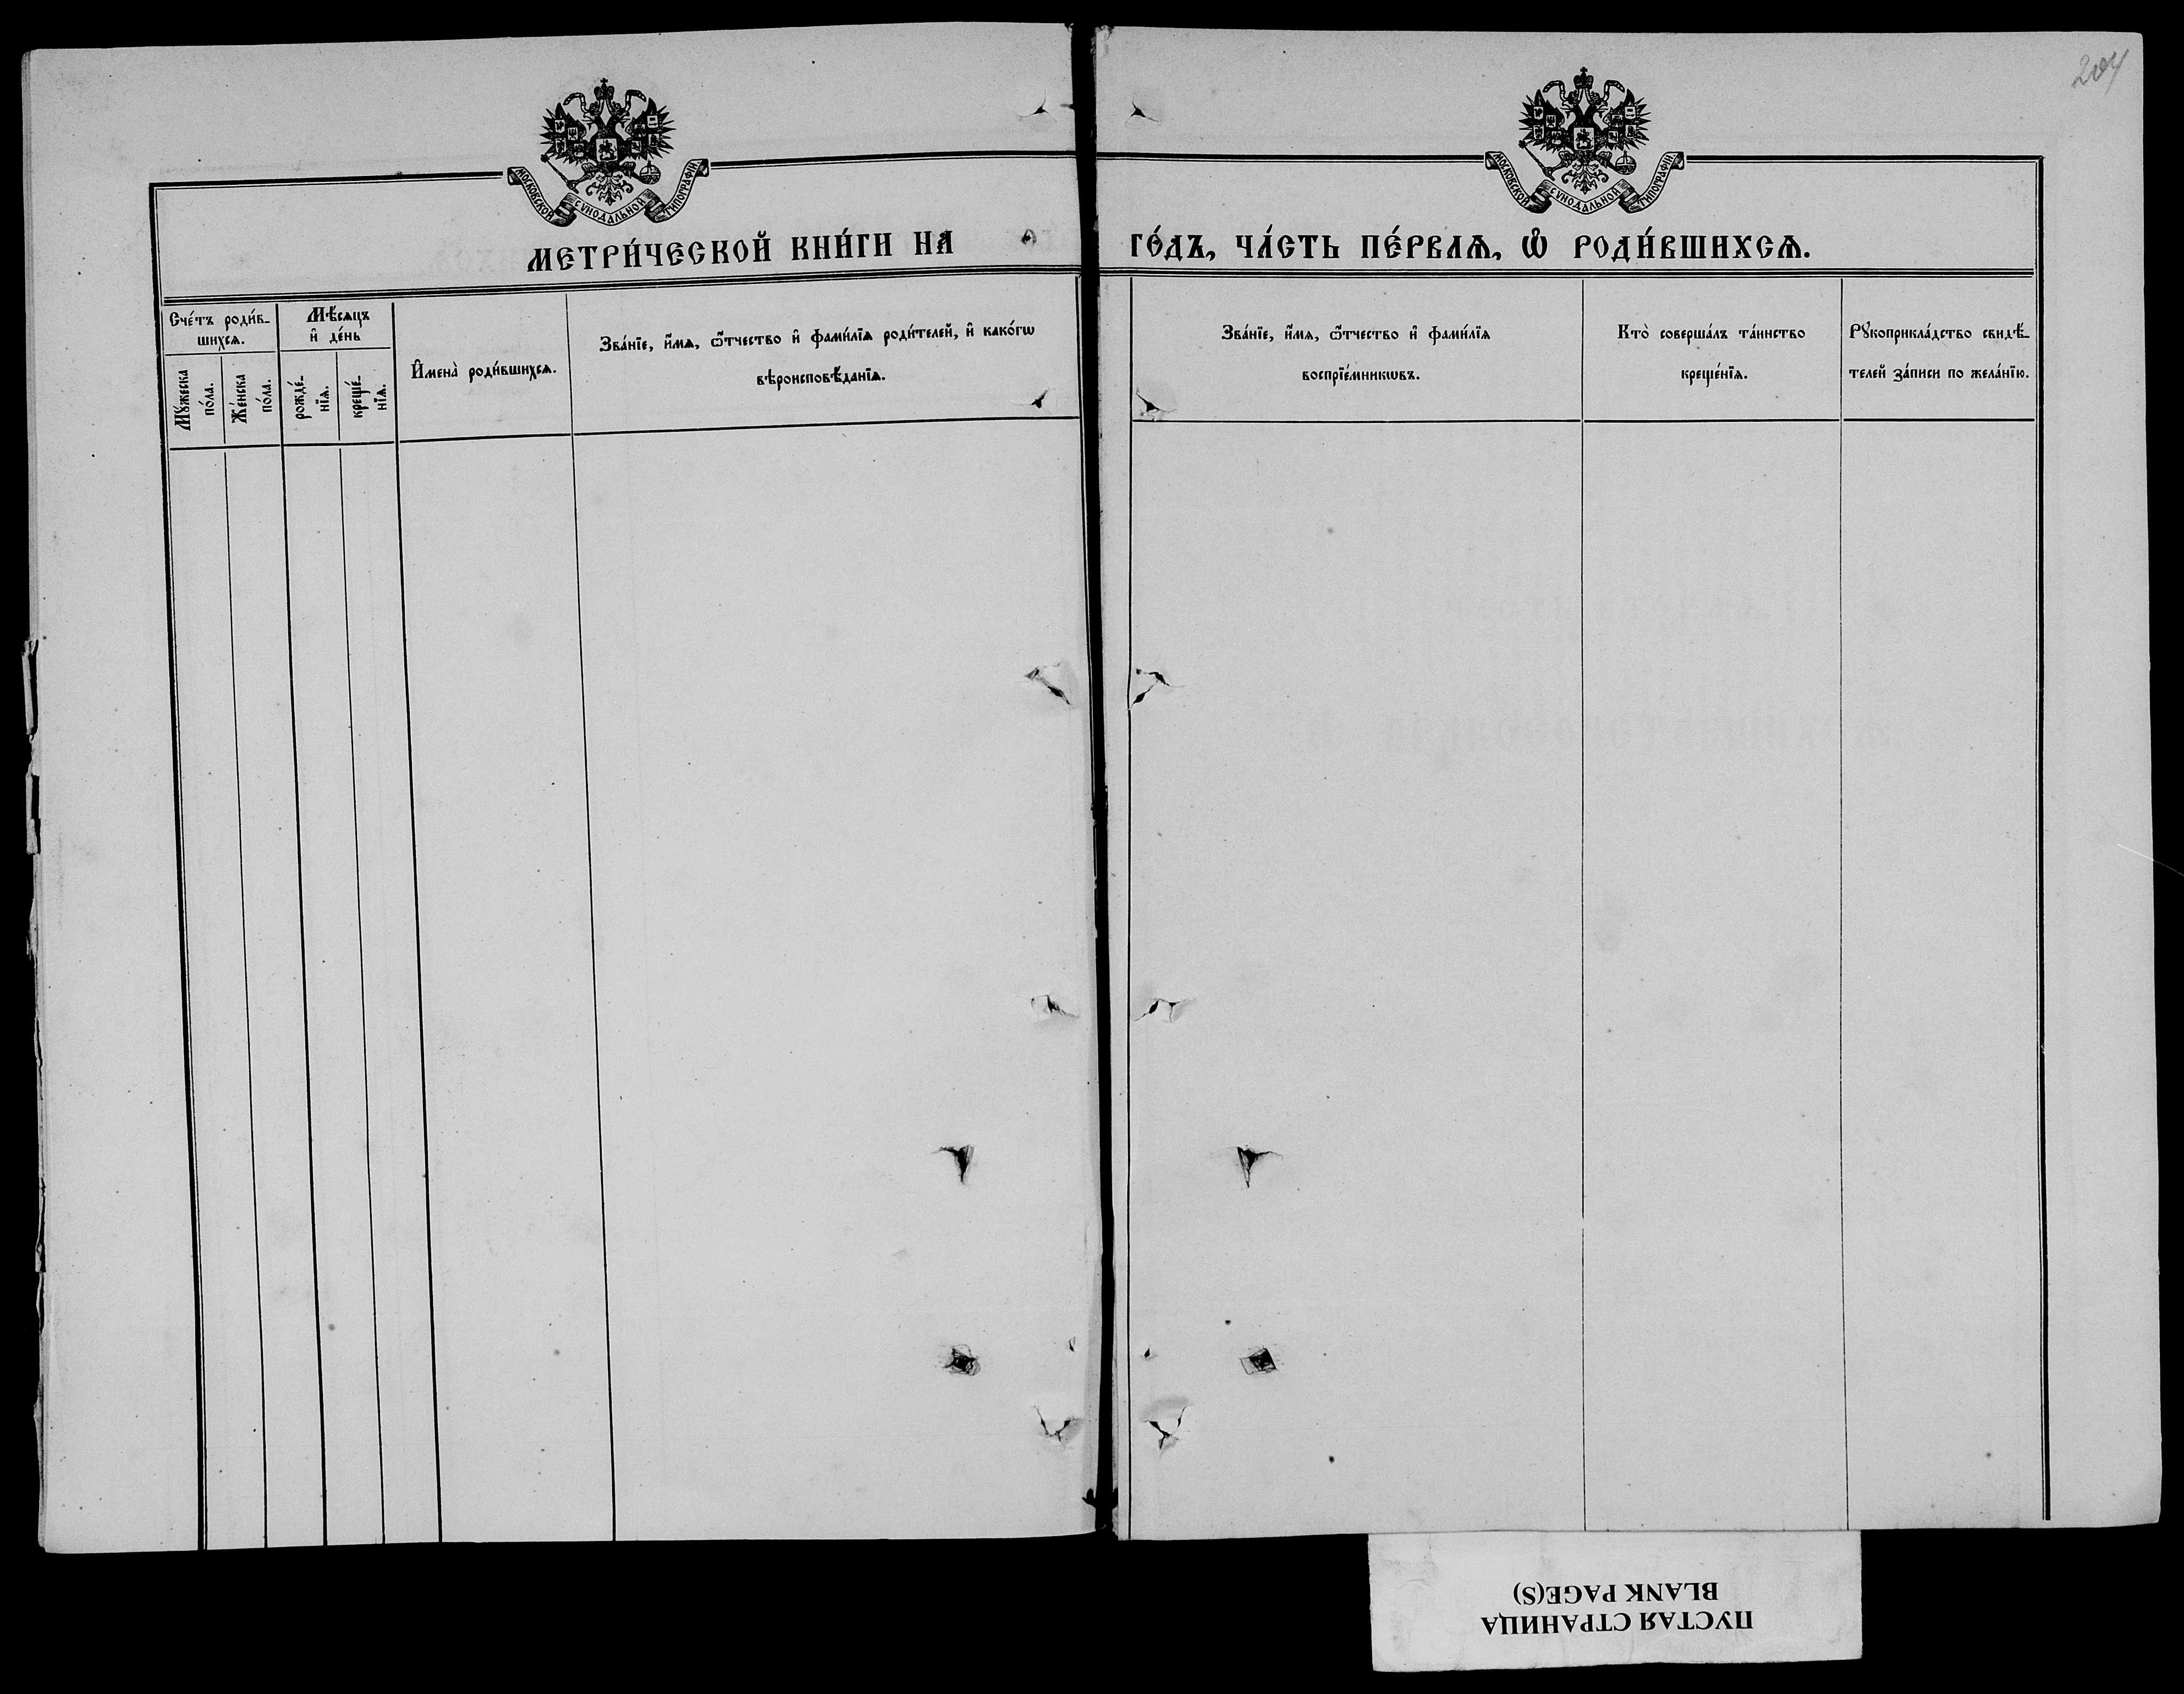 204
МОСКОВСКОЙ СѴНОДАЛЬНОЙ ТИПОГРАФІИ
МОСКОВСКОЙ СѴНОДАЛЬНОЙ ТИПОГРАФІИ
МЕТРИ́ЧЕСКОЙ КНИ́ГИ НА
ГО́ДЪ, ЧА́СТЬ ПЕ́РВАѦ, Ѽ РОДИ́ВШИХСѦ.
Сче́тъ роди́в-
шихсѧ.
Мꙋ́жеска
по́ла.
Же́нска
по́ла.
Мѣ́сѧцъ
и҆ де́нь
рожде́-
нїѧ.
креще́-
нїѧ.
И҆мена̀ роди́вшихсѧ.
Зва́нїе, и҆́мѧ, ѻ҆́тчество и҆ фами́лїѧ роди́телей, и҆ како́гѡ
вѣроисповѣ́данїѧ.
Зва́нїе, и҆́мѧ, ѻ҆́тчество и҆ фами́лїѧ
воспрїе́мникѡвъ.
Кто̀ соверша́лъ та́инство
креще́нїѧ.
Рꙋкоприкла́дство свидѣ́-
телей за́писи по жела́нїю.
ПУСТАЯ СТРАНИЦА
BLANK PAGE(S)